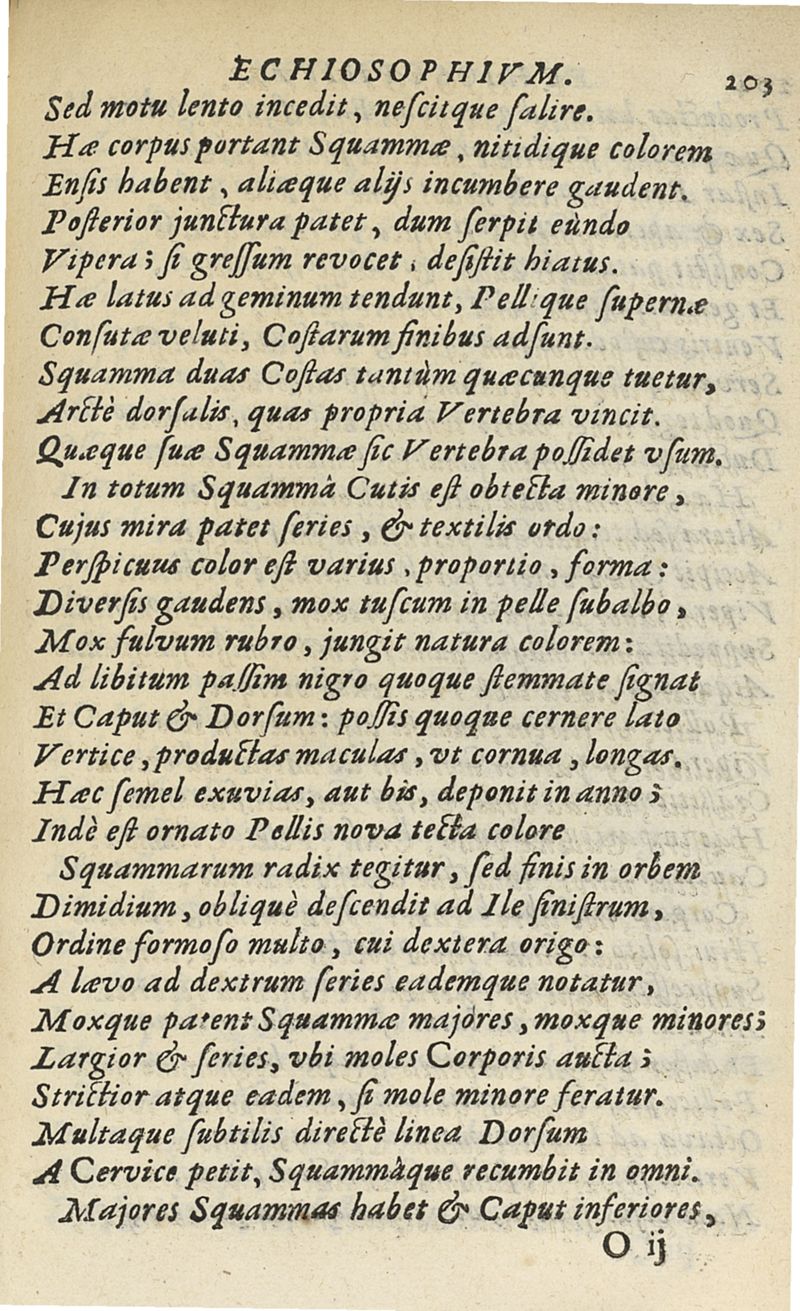 ECHIOSOPHIVM. 203
Sed motu lento incedit, neſcitque ſalire.
Hæ corpus portant Squammæ, nitidique colorem
Enſis habent, aliæque alijs incumbere gaudent.
Poſterior junctura patet, dum ſerpit eùndo
Vipera; ſi greſſum revocet, deſiſtit hiatus.
Hæ latus ad geminum tendunt, Pellique ſupernæ
Conſutæ veluti, Coſtarum finibus adſunt.
Squamma duas Coſtas tantùm quæcunque tuetur,
Arctè dorſalis, quas propria Vertebra vincit.
Quæque ſuæ Squammæ ſic Vertebra poſſidet vſum.
In totum Squammà Cutis eſt obtecta minore,
Cujus mira patet ſeries, & textilis ordo:
Perſpicuus color eſt varius, proportio, forma:
Diverſis gaudens, mox tuſcum in pelle ſubalbo,
Mox fulvum rubro, jungit natura colorem:
Ad libitum paſſim nigro quoque ſtemmate ſignat
Et Caput & Dorſum: poſſis quoque cernere lato
Vertice, productas maculas, vt cornua, longas.
Hæc ſemel exuvias, aut bis, deponit in anno;
Indè eſt ornato Pellis nova tecta colore
Squammarum radix tegitur, ſed finis in orbem
Dimidium, obliquè deſcendit ad Ile ſiniſtrum,
Ordine formoſo multo, cui dextera origo:
A lævo ad dextrum ſeries eademque notatur,
Moxque patent Squammæ majores, moxque minores;
Largior & ſeries, vbi moles Corporis aucta;
Strictior atque eadem, ſi mole minore feratur.
Multaque ſubtilis directè linea Dorſum
A Cervice petit, Squammàque recumbit in omni.
Majores Squammas habet & Caput inferiores,
O ij